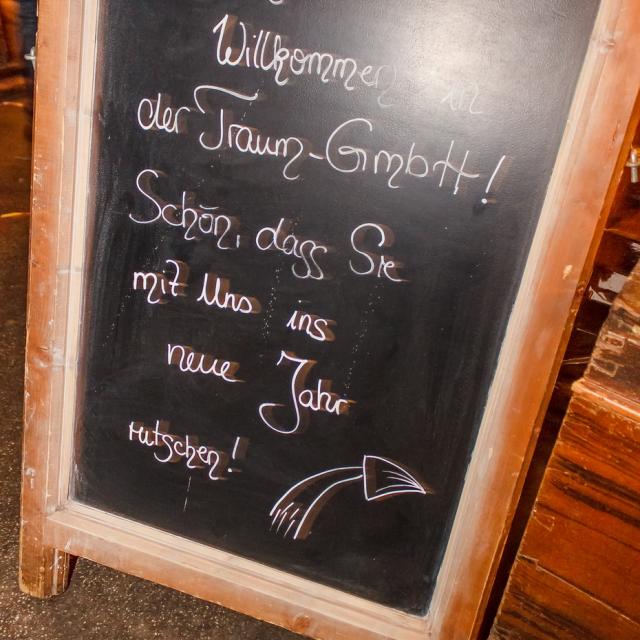 Willkommen in
der Traum-GmbH!
Schön, dass Sie
mit Uns ins
neue Jahr
rutschen!